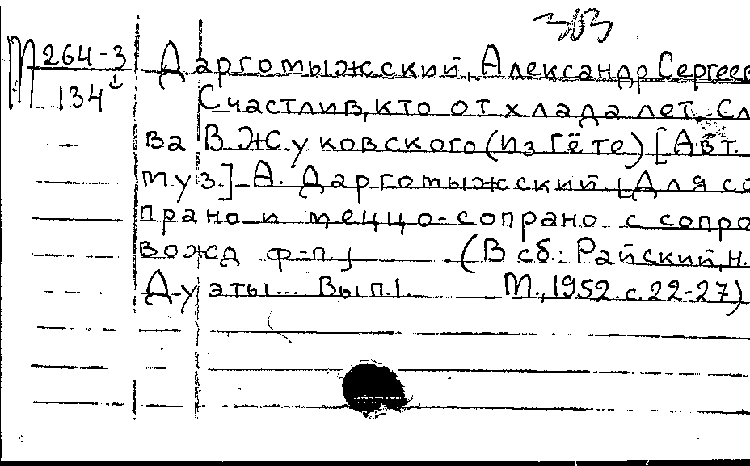 303
М 264-3 Даргомыжский, Александр Сергеев
134 Счастлив, кто от хлада лет. Сл
ва В. Жуковского (из Гёте) [Авт.
муз.] А. Даргомыжский [Для со
прано и меццо-сопрано с сопро
вожд ф-п] (В сб.: Райский, Н.
Дуэты... Вып.1. М., 1952 с. 22-27)